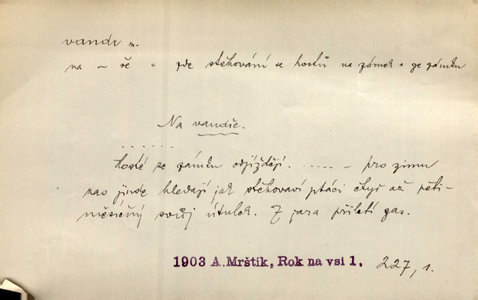 vandr m.
na – ře = zde stěhování se hostů na zámek a ze zámku
Na vandře.
. . . . . .
Hosté ze zámku odjíždějí. . . . . . – pro zimu
zas jinde hledají jak stěhovaví ptáci čtyř až pěti-
měsíčný svůj útulek. Z jara přiletí zas.
1903 A. Mrštík, Rok na vsi 1. 227, 1.